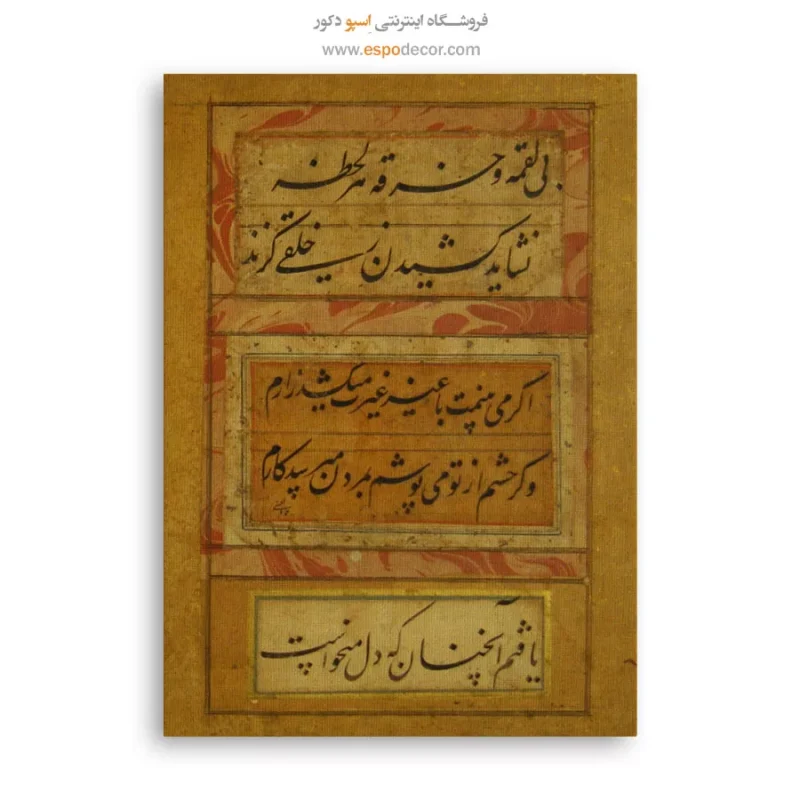 فروشگاه اینترنتی اِسپو دکور
www.espodecor.com
بی لقمه و خرقه هر لحظه
نشاید کشیدن ز خلقی گزند
اگر می بینمت با غیر غیرت میکشد زارم
وگر چشم از تو می پوشم بمردن میرسد کارم
یافتم آنچنان که دل میخواست